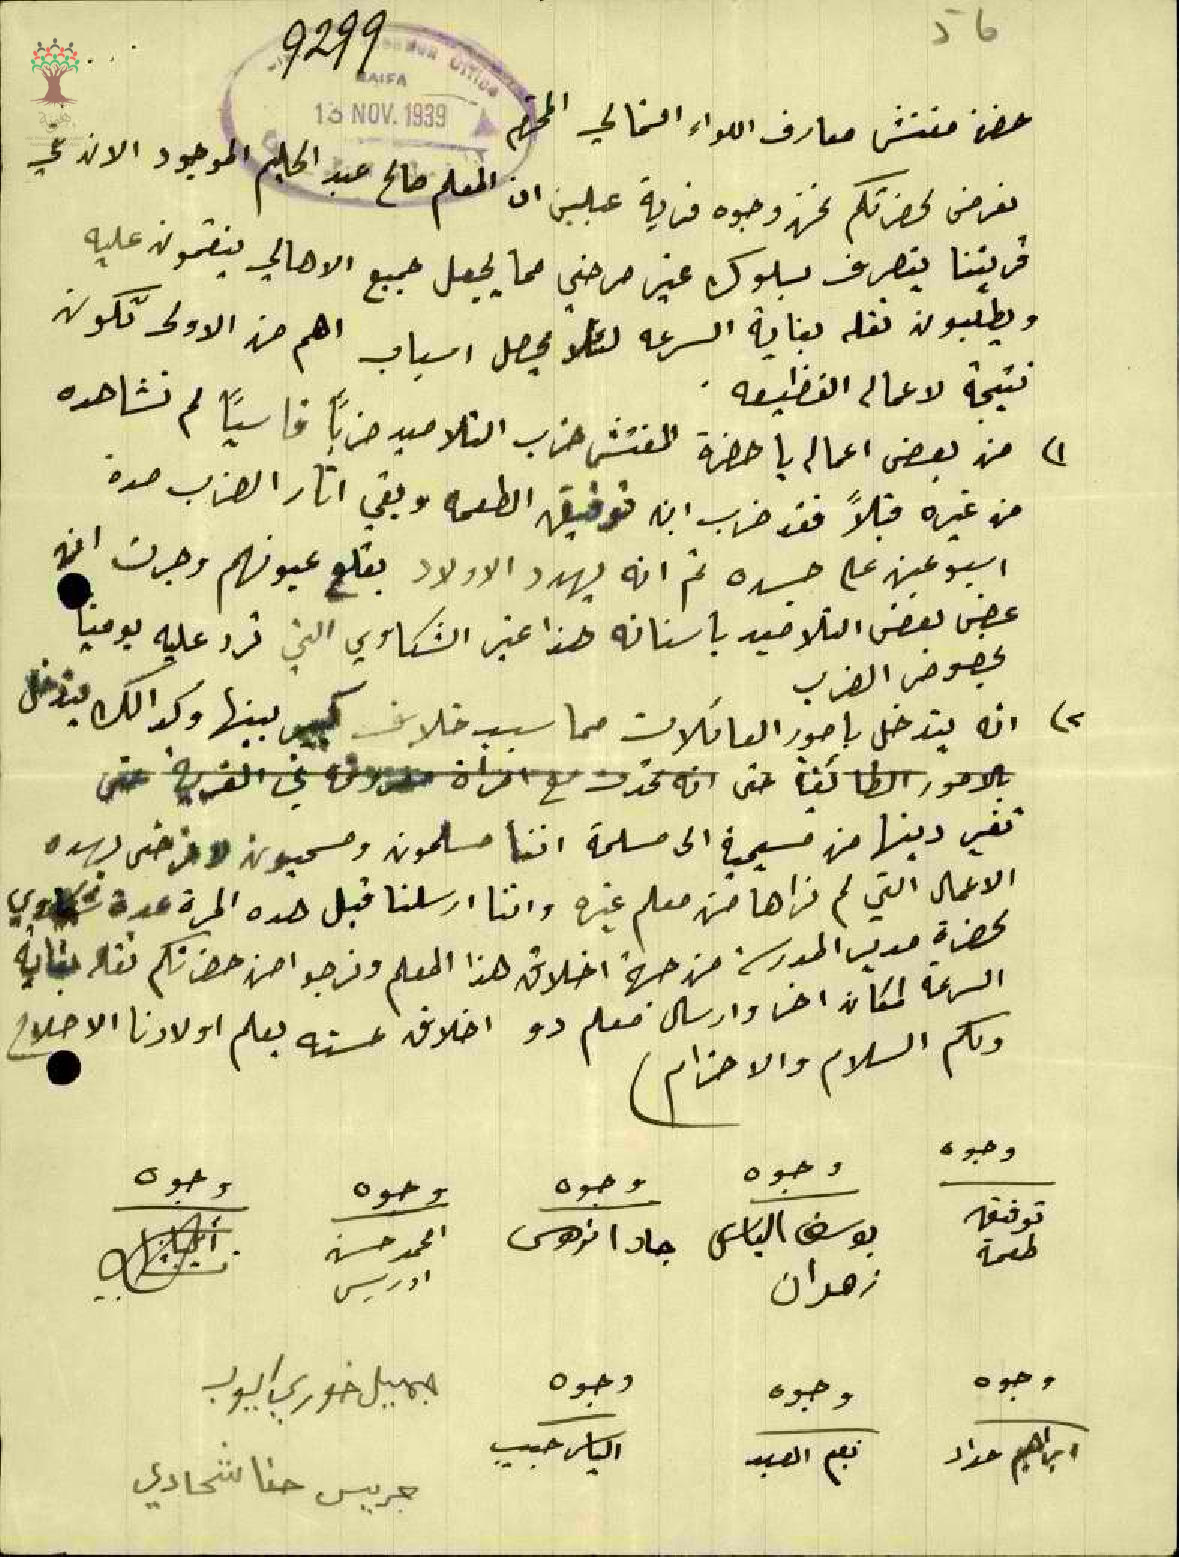 ٥٦
9299
HAIFA
13 NOV. 1939
حضرة مفتش معارف اللواء الشمالي المحترم
نعرض لحضرتكم نحن وجوه قرية عبلين ان المعلم صالح عبد الحليم الموجود الان في
قريتنا يتصرف بسلوك غير مرضي مما يجعل جميع الاهالي ينقمون عليه
ويطلبون نقله بغاية السرعه لئلا يحصل اسباب اهم من الاولى تكون
نتيجة لاعماله الفظيعه .
١) من بعض اعماله يا حضرة المفتش ضرب التلاميذ ضرباً قاسياً لم نشاهده
من غيره قبلاً فقد ضرب ابن توفيق الطعمه وبقي اثار الضرب مدة
اسبوعين على جسده ثم انه يهدد الاولاد بقلع عيونهم وجرت ان
عض بعض التلاميد باسنانه هذا غير الشكاوي التي ترد عليه يومياً
بخصوص الضرب
٢) انه يتدخل بامور العائلات مما سبب خلاف كبير بينها وكدالك يتدخل
بالامور الطائفية حتى انه تحدث مع امرأة في القرية حتى
تغير دينها من مسيحية الى مسلمة اننا مسلمون ومسحيون لا نرضى بهده
الاعمال التي لم نراها من معلم غيره واننا ارسلنا قبل هده المرة عدة شكاوي
لحضرة مدير المدرسة من جهة اخلاق هذا المعلم ونرجوا من حضرتكم نقله بغاية
السرعة لمكان اخر وارسال معلم دو اخلاق حسنه يعلم اولادنا الاصلاح
ولكم السلام والاحترام)
وجوه وجوه وجوه وجوه وجوه
توفيق طعمة
يوسف الياس زهران
جاد
محمد حسن ادريس
وجوه وجوه وجوه
ابراهيم حداد
نعيم العبد
الياس حبيب
جميل خوري ايوب
جريس حنا شحادي